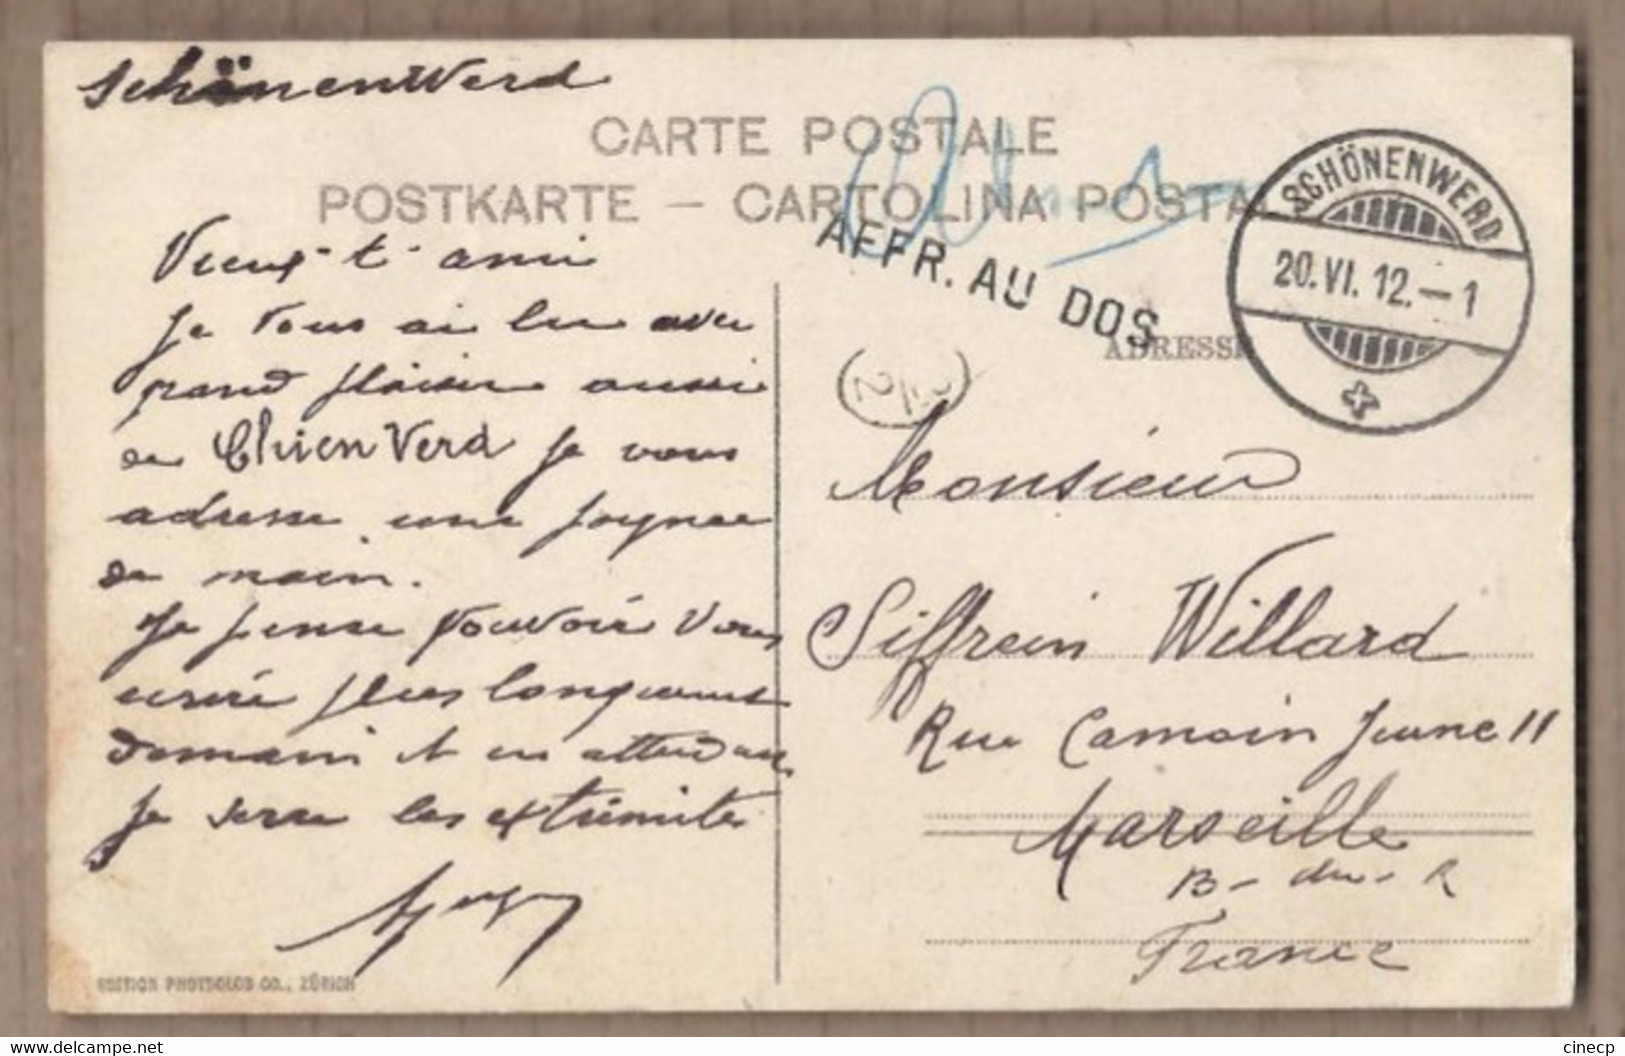 SchönenWerd
CARTE POSTALE
POSTKARTE — CARTOLINA POSTAL
AFFR. AU DOS
SCHÖNENWERD
20.VI.12.–1
ADRESSE
Vieux-t-ami
Je vous ai lu avec
grand plaisir aussi
de Chien Verd je vous
adresse une poignee
de main.
Je pense pouvoir vous
ecrire plus longuement
demain et en attendant
je serre les extrémités
Monsieur
Siffrein Willard
Rue Camoin Jeune 11
Marseille
B- du- R
France
EDITION PHOTOGLOB CO., ZÜRICH
cinecp